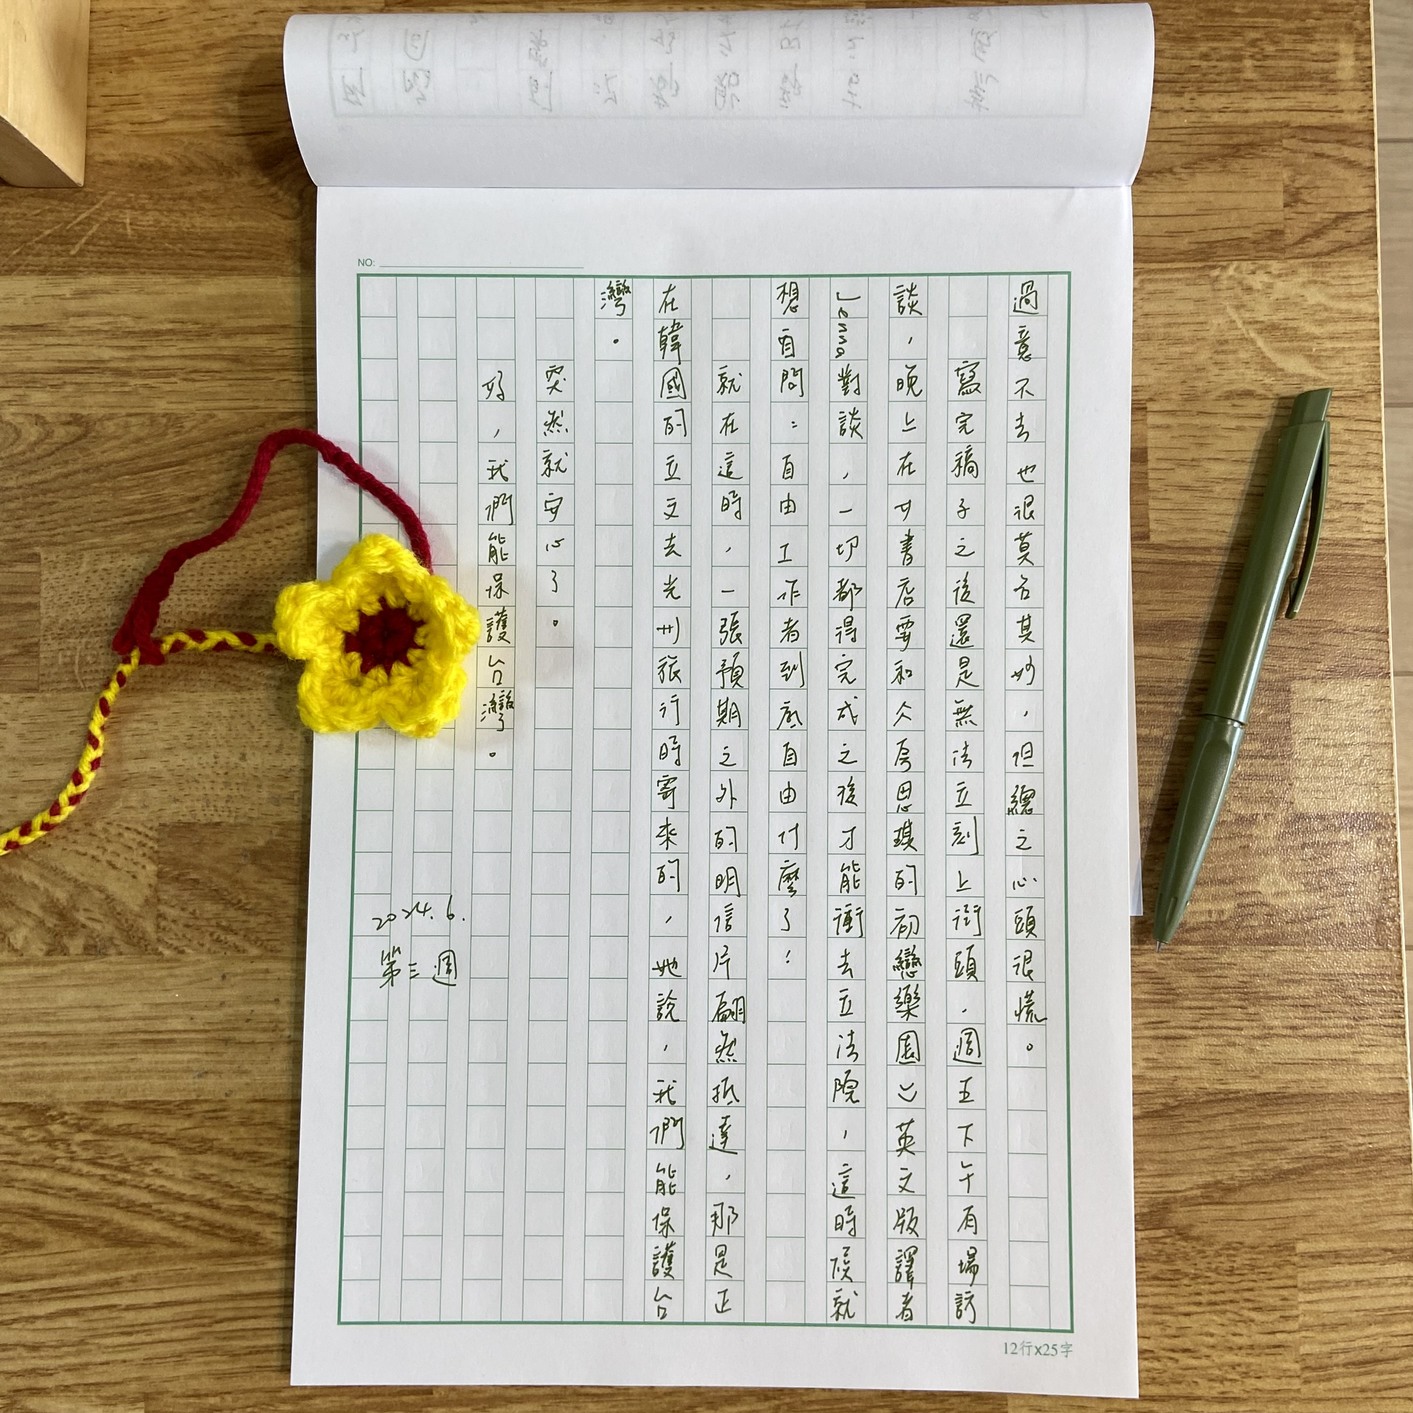 NO:
過意不去也很莫名其妙，但總之心頭很慌。
寫完稿子之後還是無法立刻上街頭，週五下午有場訪
談，晚上在女書店要和《房思琪的初戀樂園》英文版譯者
Jenna對談，一切都得完成之後才能衝去立法院，這時候就
想自問：自由工作者到底自由什麼了！
就在這時，一張預期之外的明信片翩然抵達，那是正
在韓國的立文去光州旅行時寄來的，她說，我們能保護台
灣。
突然就安心了。
好，我們能保護台灣。
2024.6.
第三週
12行x25字